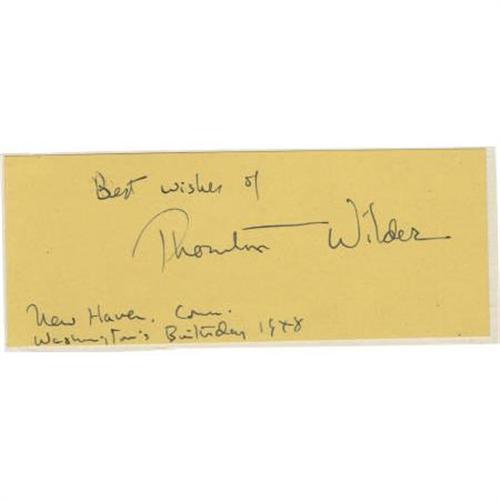 Best wishes of
Thornton Wilder
New Haven. Conn.
Washington's Birthday 1948